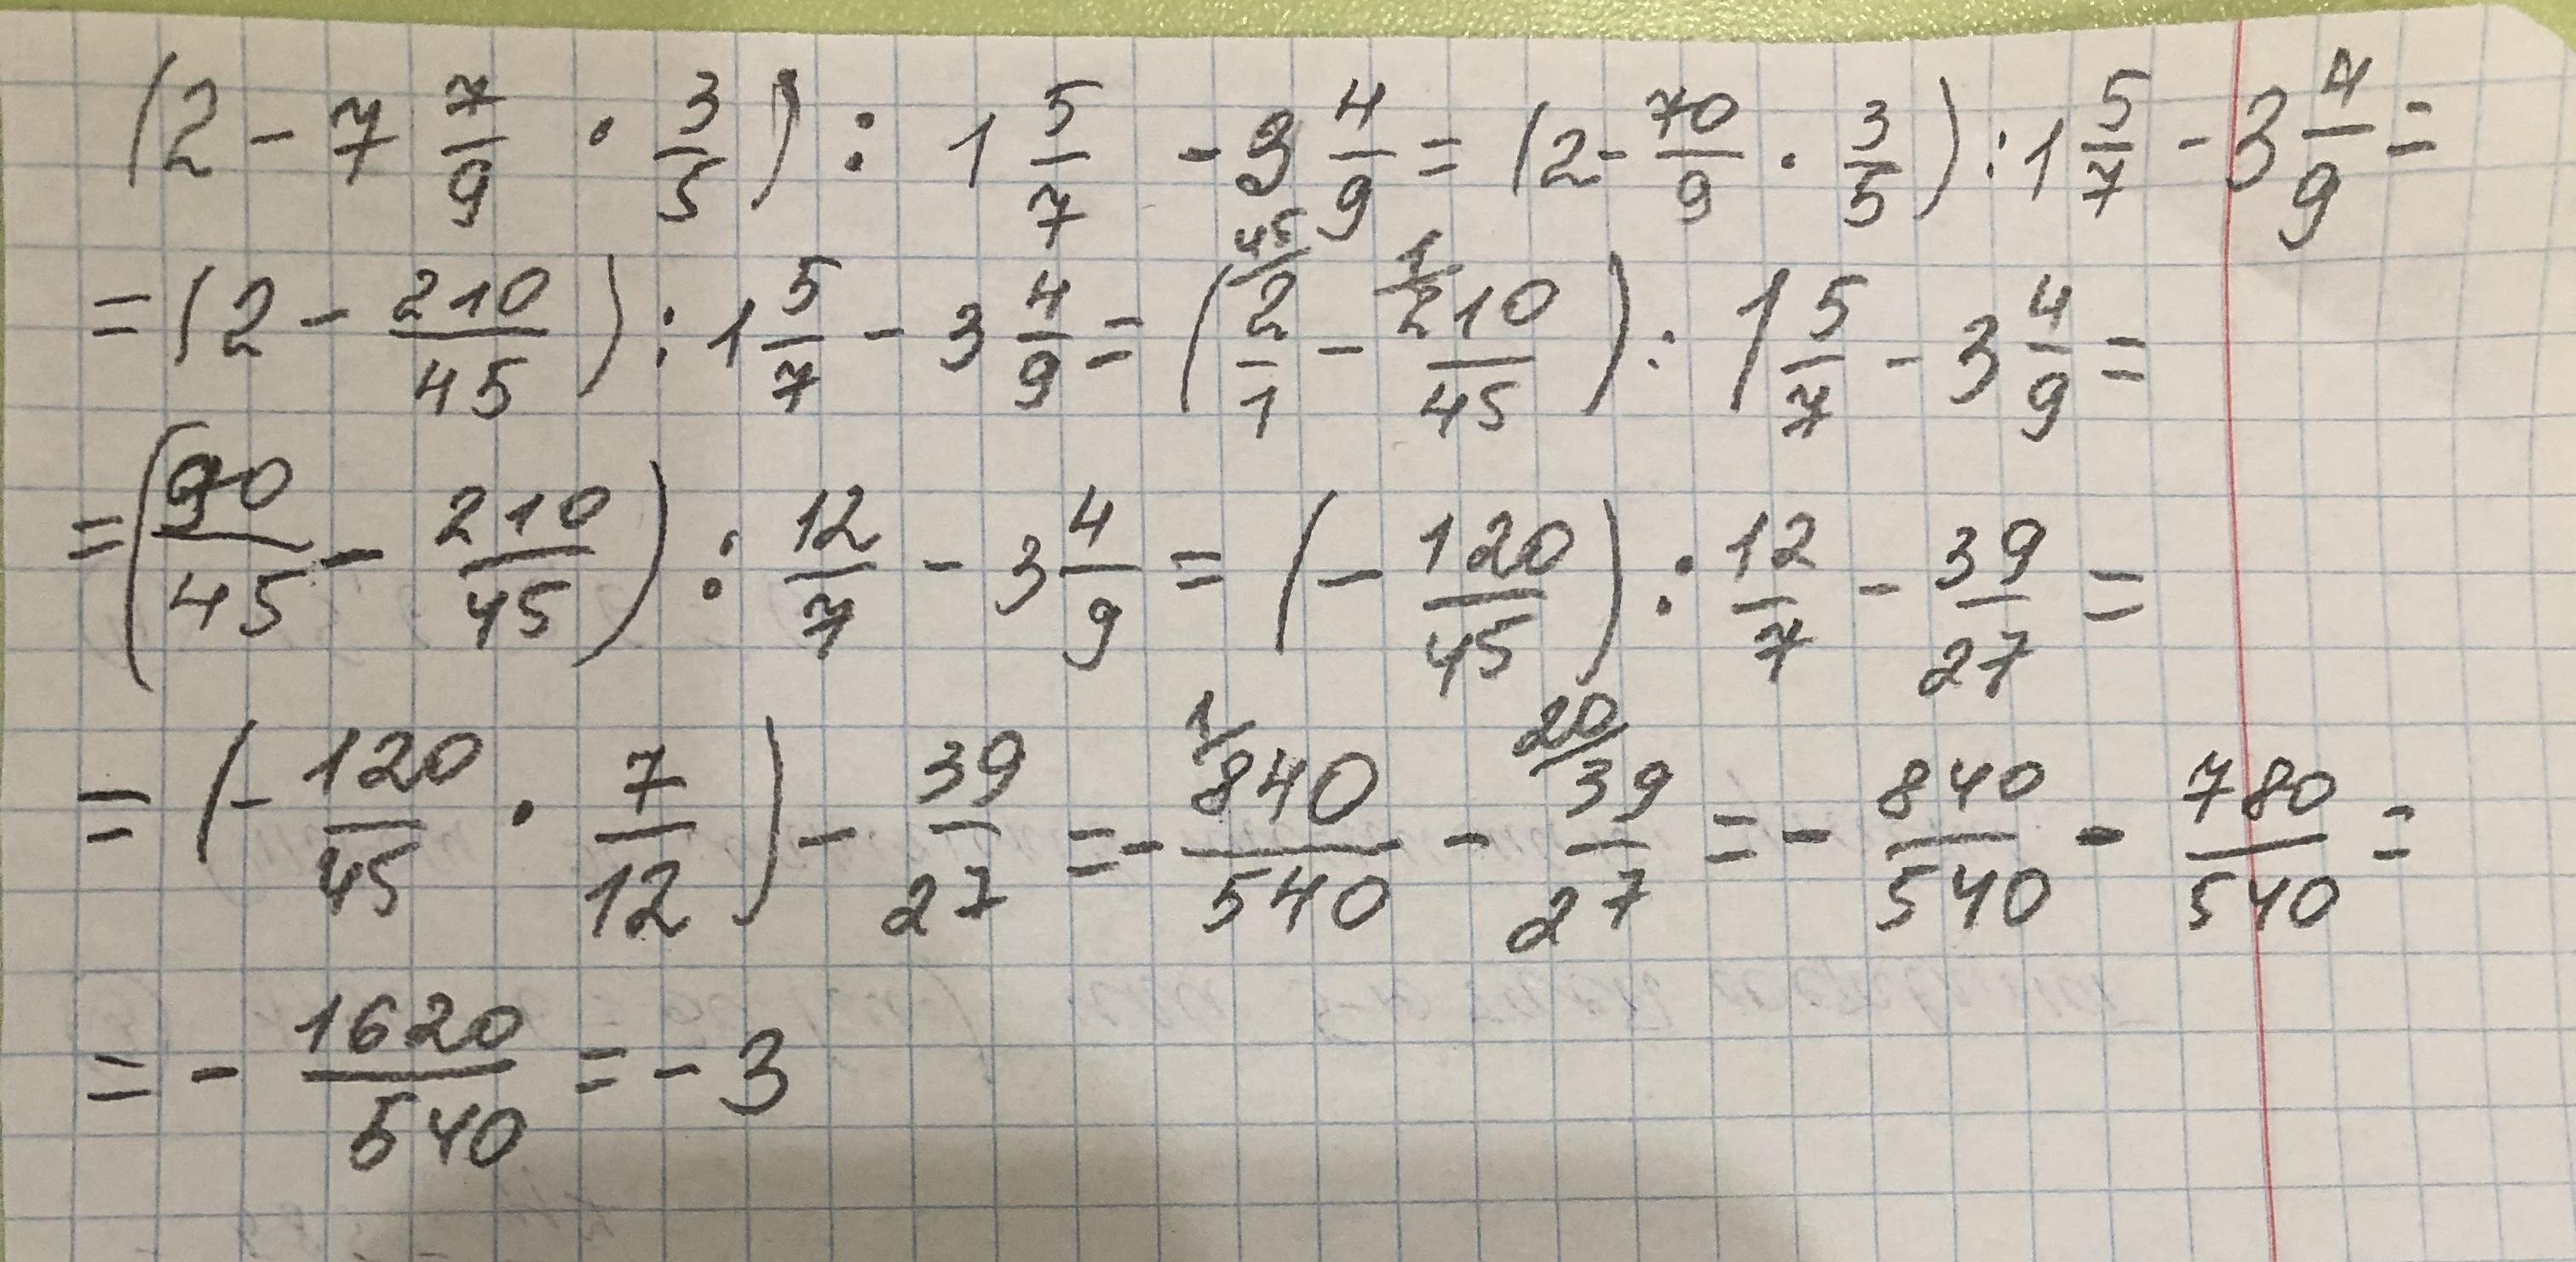 (2 - 7 7/9 · 3/5) : 1 5/7 - 3 4/9 = (2 - 70/9 · 3/5) : 1 5/7 - 3 4/9 =
= (2 - 210/45) : 1 5/7 - 3 4/9 = (45/ 2/1 - 1/ 210/45) : 1 5/7 - 3 4/9 =
= (90/45 - 210/45) : 12/7 - 3 4/9 = (- 120/45) : 12/7 - 39/27 =
= (- 120/45 · 7/12) - 39/27 = - 1/ 840/540 - 20/ 39/27 = - 840/540 - 780/540 =
= - 1620/540 = - 3